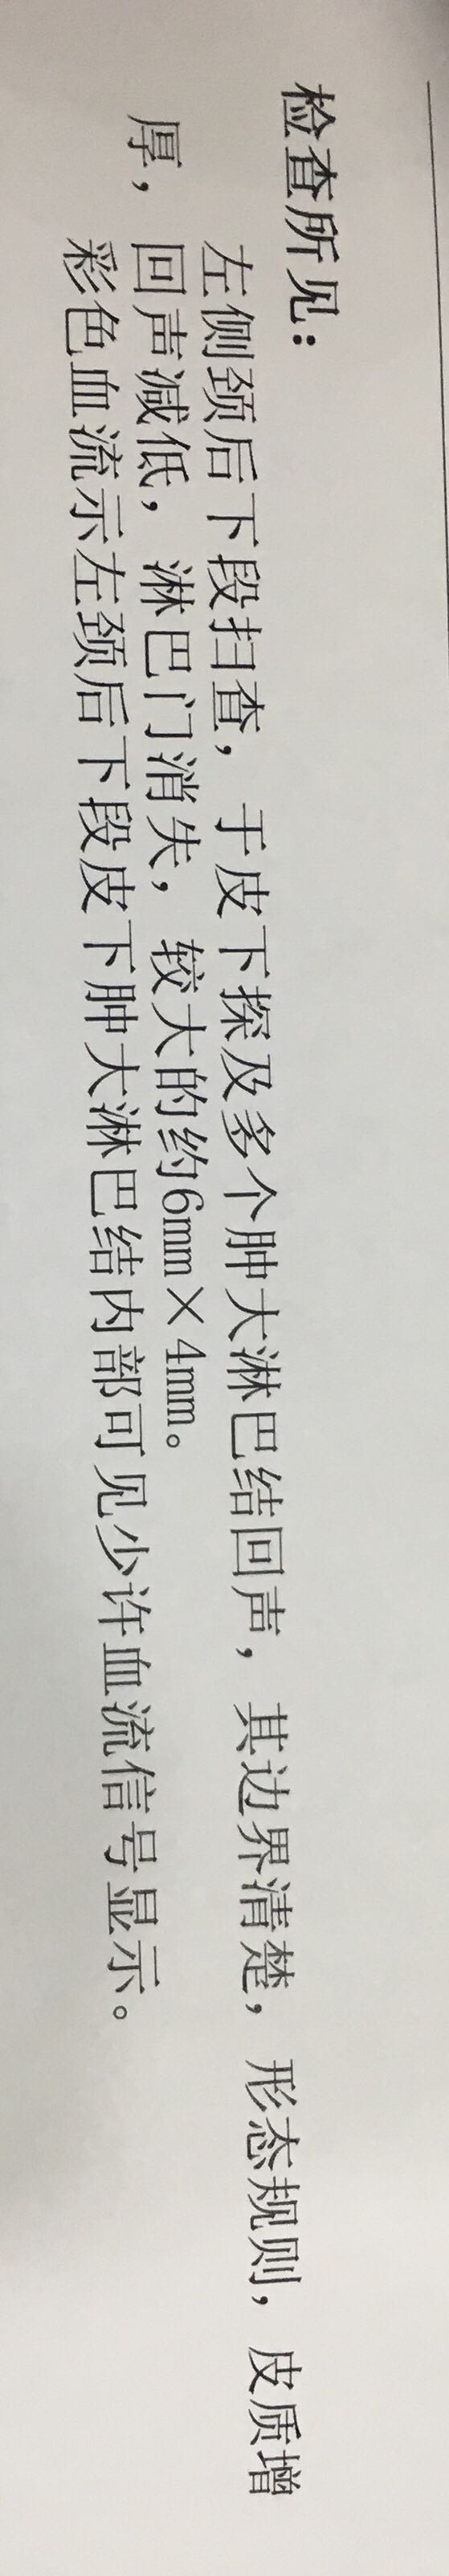 检查所见：
左侧颈后下段扫查，于皮下探及多个肿大淋巴结回声，其边界清楚，形态规则，皮质增
厚，回声减低，淋巴门消失，较大的约6mm×4mm。
彩色血流示左颈后下段皮下肿大淋巴结内部可见少许血流信号显示。